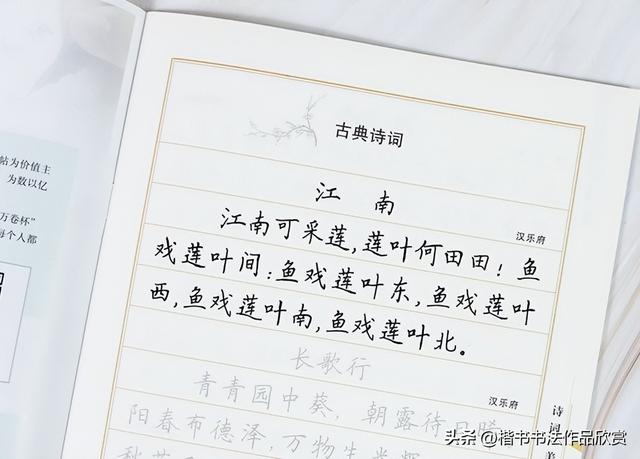 帖为价值主
为数以亿
万卷杯”
每个人都
古典诗词
江 南
汉乐府
江南可采莲,莲叶何田田!鱼
戏莲叶间:鱼戏莲叶东,鱼戏莲叶
西,鱼戏莲叶南,鱼戏莲叶北。
长歌行
汉乐府
青青园中葵,朝露待日晞
阳春布德泽,万物生光辉
诗词
头条 @楷书书法作品欣赏